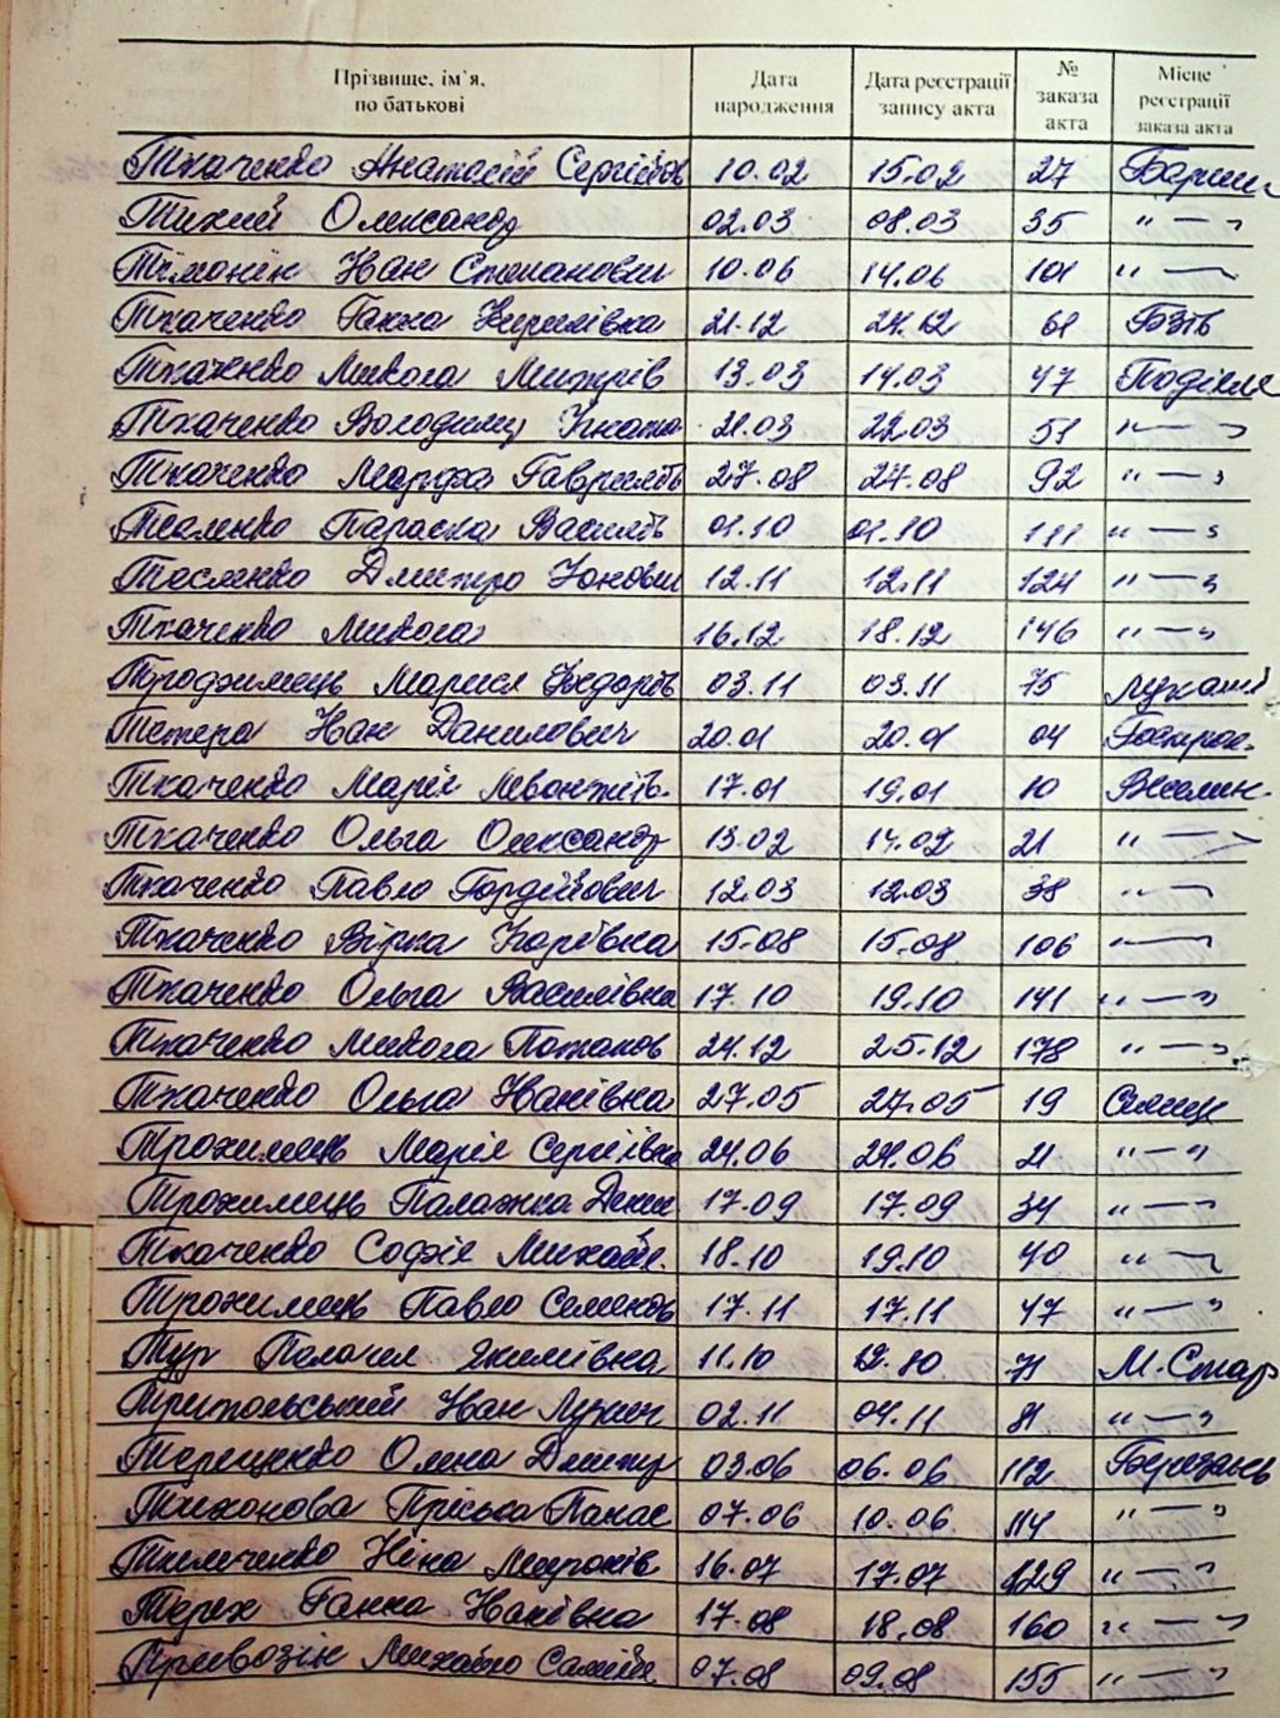 Прізвище, ім'я, по батькові Дата народження Дата реєстрації запису акта № заказа акта Місце реєстрації заказа акта
Ткаченко Анатолій Сергійов 10.02 15.02 27 Бариш
Тихий Олександр 02.03 08.03 35 " — "
Тімонін Іван Степанович 10.06 14.06 101 " —
Ткаченко Ганна Кирилівна 21.12 24.12 61 Бзів
Ткаченко Микола Дмитрів 13.03 14.03 47 Поділля
Ткаченко Володимир Гнато 21.03 22.03 51 " — "
Ткаченко Марфа Гаврилів 27.08 27.08 92 " — "
Параска Василів 01.10 01.10 111 " — "
Тесленко Дмитро Йонович 12.11 12.11 124 " — "
Ткаченко Микола 16.12 18.12 146 " — "
Марися Федорів 03.11 03.11 75 Лукаші
Тетера Іван Данилович 20.01 20.01 04
Ткаченко Марія Левонтіїв. 17.01 19.01 10 Веселин.
Ткаченко Ольга Олександр 13.02 14.02 21 " —
Ткаченко Павло Гордійович 12.03 12.03 38 " —
Ткаченко Вірка Карпівна 15.08 15.08 106 " —
Ткаченко Ольга Василівна 17.10 19.10 141 " — "
Ткаченко Микола Потапов 24.12 25.12 178 " — "
Ткаченко Ольга Іванівна 27.05 27.05 19
Трохимець Марія Сергіївна 24.06 24.06 21 " — "
Трохимець Палажка Дени 17.09 17.09 34 " — "
Ткаченко Софія Михайл. 18.10 19.10 40 " —
Трохимець Павло Семенов 17.11 17.11 47 " — "
Тур Пелагея Якимівна 11.10 12.10 71 М. Стар
Іван Лукич 02.11 04.11 81 " — "
Терещенко Олена Дмитр 03.06 06.06 112 Березань
Тихонова Пріська Панас 07.06 10.06 114 " — "
Тимченко Ніна Миронів 16.07 17.07 129 " — "
Терех Ганна Іванівна 17.08 18.08 160 " — "
Михайло Самійл 07.08 09.08 155 " — "